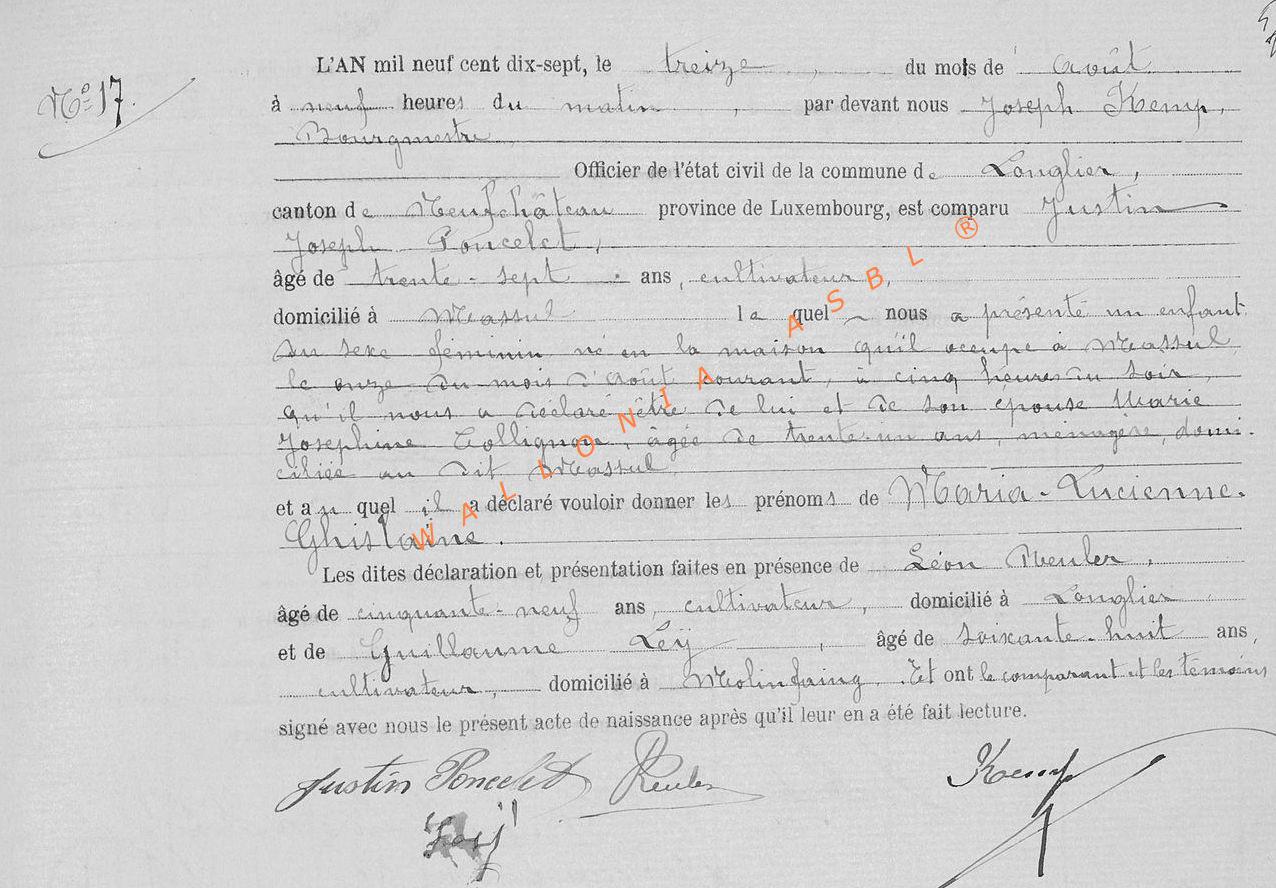 Nº 17.
L'AN mil neuf cent dix-sept, le treize, du mois de août
à neuf heures du matin, par devant nous Joseph Kemp,
Bourgmestre
Officier de l'état civil de la commune de Longlier,
canton de Neufchâteau province de Luxembourg, est comparu Justin
Joseph Poncelet,
âgé de trente-sept ans, cultivateur,
domicilié à Massul lequel nous a présenté un enfant
du sexe féminin né en la maison qu'il occupe à Massul,
le onze du mois d'août courant, à cinq heures du soir,
qu'il nous a déclaré être de lui et de son épouse Marie
Josephine Collignon, âgée de trente-un ans, ménagère, domi-
ciliée au dit Massul
et auquel il a déclaré vouloir donner les prénoms de Maria-Lucienne-
Ghislaine.
Les dites déclaration et présentation faites en présence de Léon Reuler,
âgé de cinquante-neuf ans, cultivateur, domicilié à Longlier
et de Guillaume Leÿ, âgé de soixante-huit ans,
cultivateur, domicilié à Molinfaing. Et ont le comparant et les témoins
signé avec nous le présent acte de naissance après qu'il leur en a été fait lecture.
Justin Poncelet Reuler Kemp
Leÿ
WALLONIA ASBL ®